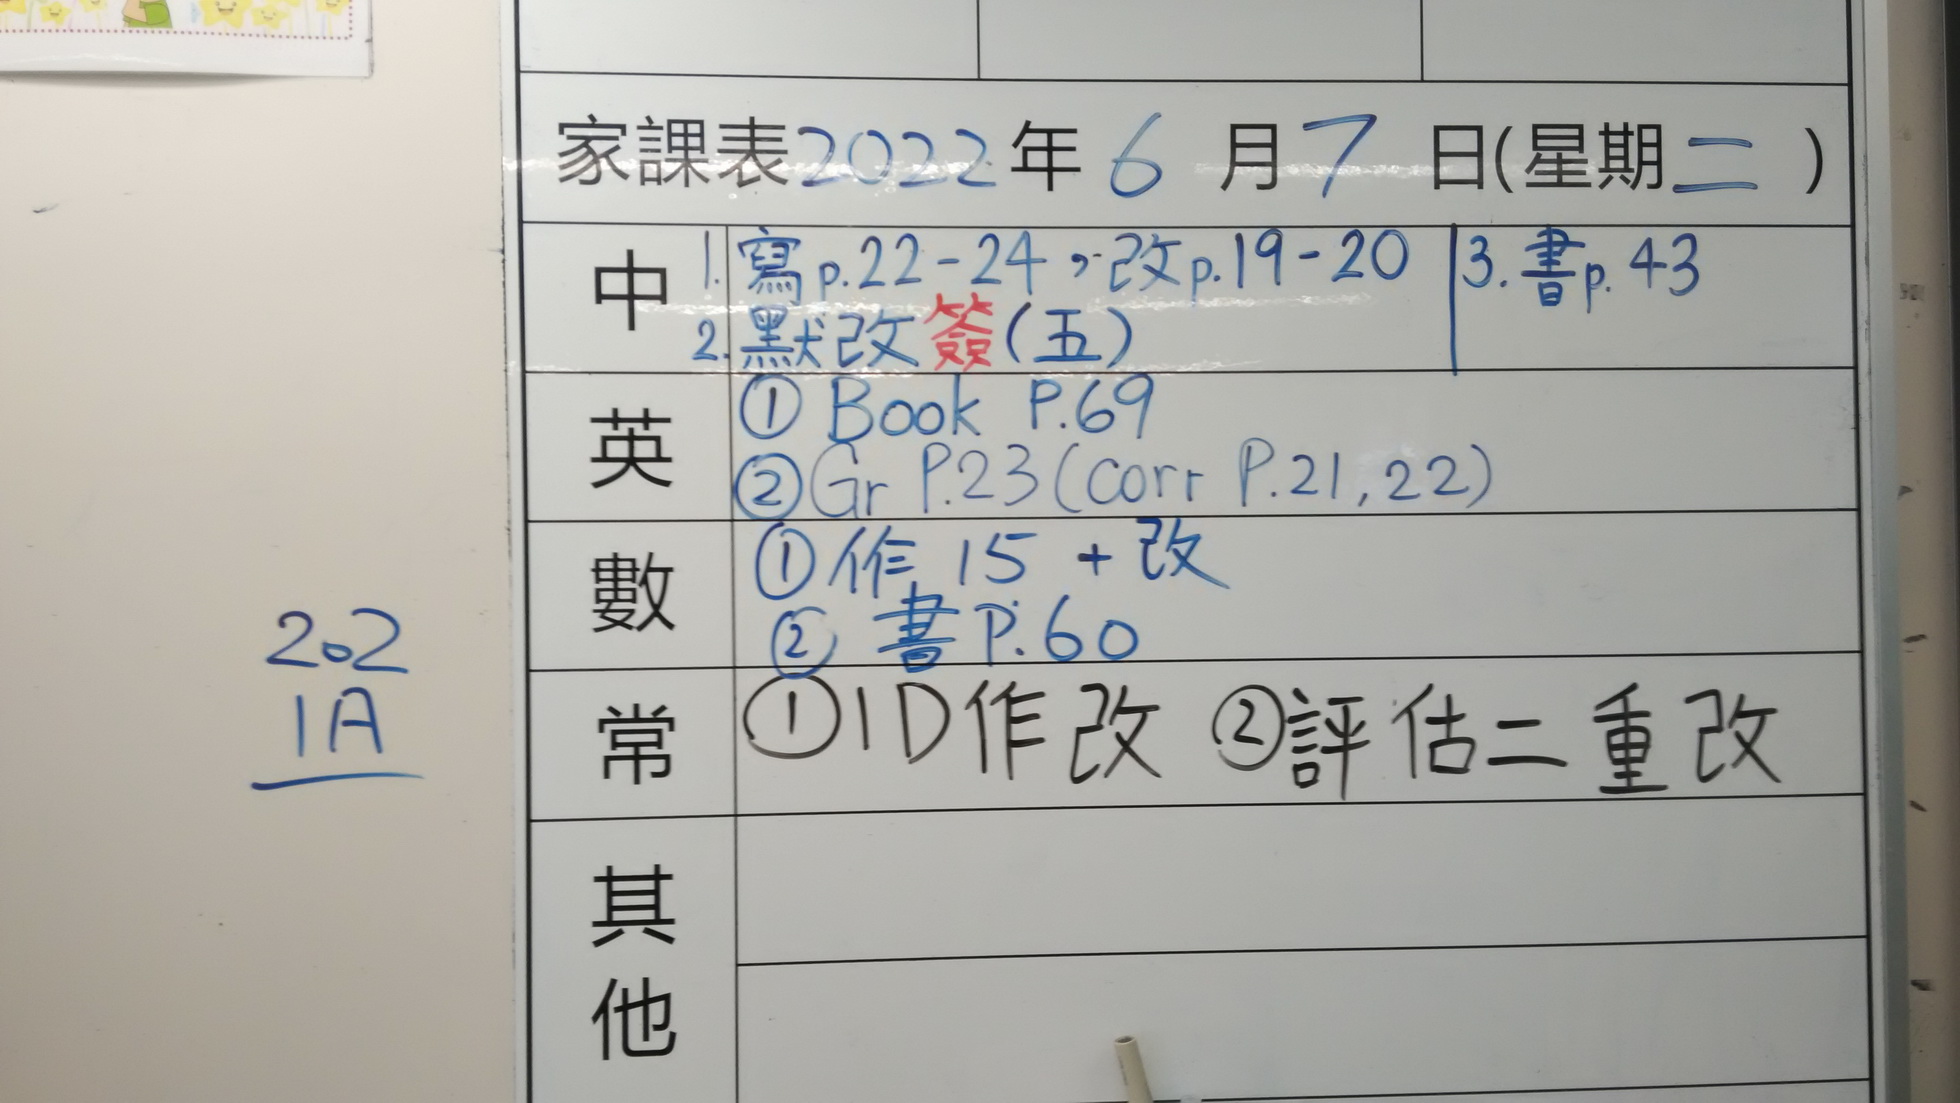 家課表2022年6月7日(星期二)
中
1. 寫p.22-24，改p.19-20
2. 默改簽(五)
3. 書p.43
英
① Book P.69
② Gr P.23 (corr P.21, 22)
數
① 作 15 + 改
② 書P.60
常
① 1D作改 ② 評估二重改
其他
202
1A